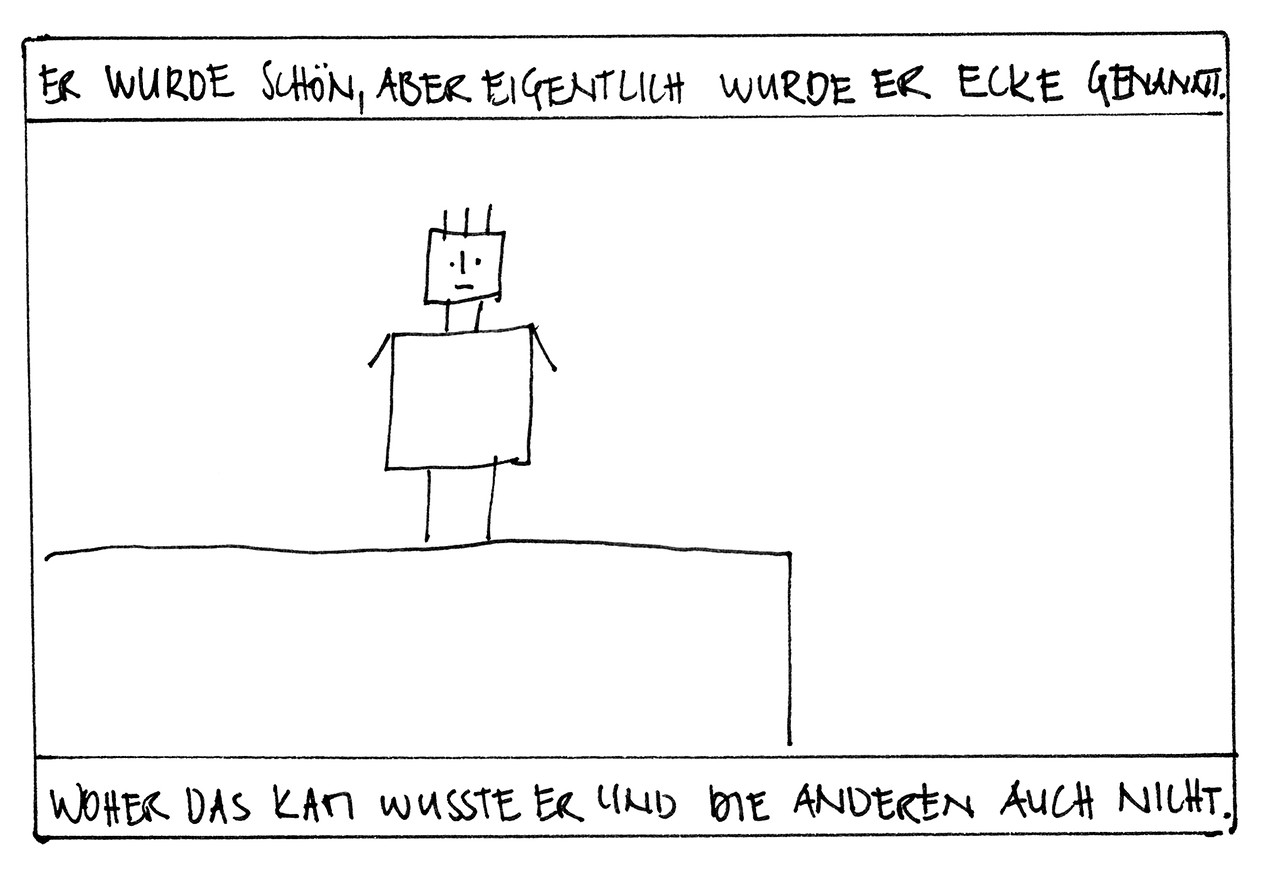 ER WURDE SCHÖN, ABER EIGENTLICH WURDE ER ECKE GENANNT.
WOHER DAS KAM WUSSTE ER UND DIE ANDEREN AUCH NICHT.